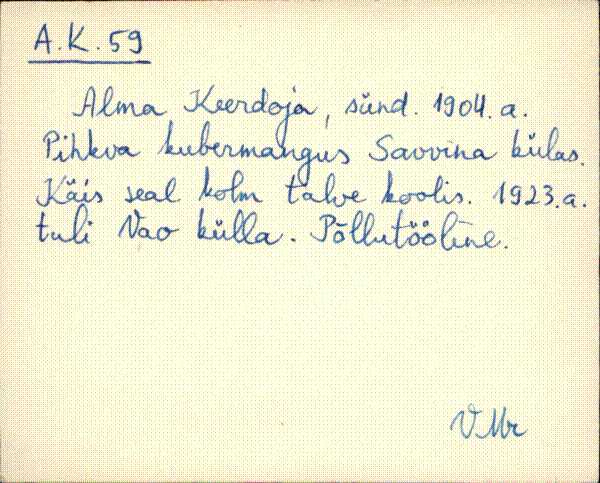 A.K. 59
Alma Keerdoja, sünd. 1904. a.
Pihkva kubermangus Savvina külas.
Käis seal kolm talve koolis. 1923.a.
tuli Vao külla. Põllutööline.
VMr